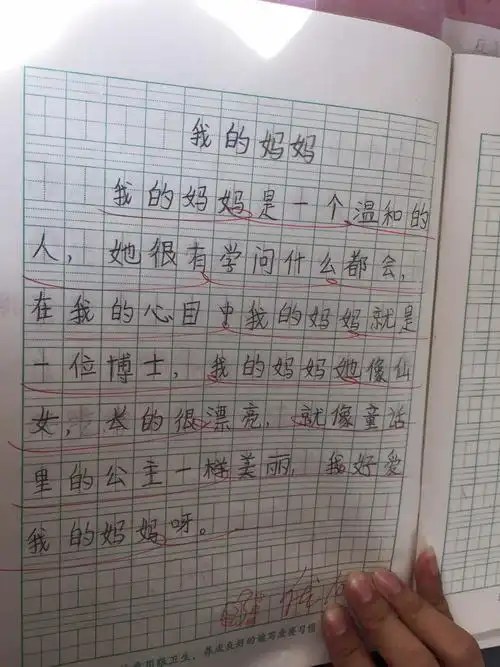 我的妈妈
我的妈妈是一个温和的
人，她很有学问什么都会，
在我的心目中我的妈妈就是
一位博士，我的妈妈她像仙
女，长的很漂亮，就像童话
里的公主一样美丽，我好爱
我的妈妈呀。
卫生，养成良好的书写卫生习惯